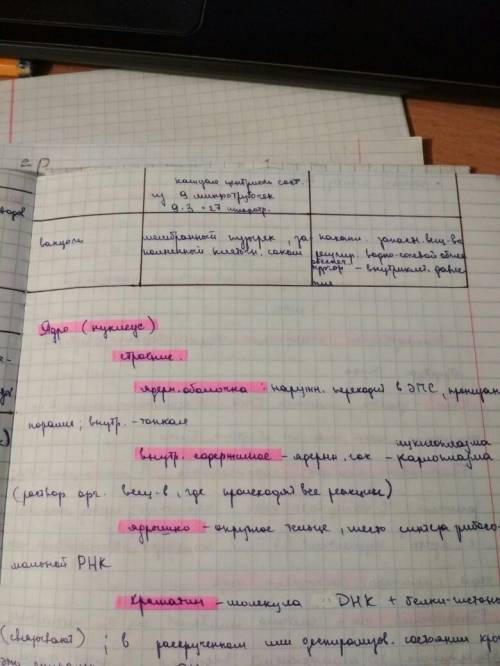 ер
каждая центриоль сост.
из 9 микротрубочек
9·3 = 27 микротр.
вакуоль
мембранный пузырек, за-
полненный клеточн. соком
накапл. запасн. вещ-ва
регулир. водно-солевой обмен
обеспеч.
тургор - внутриклет. давле-
ние
Ядро (нуклеус)
строение:
ядерн. оболочка: наружн. переходит в ЭПС, пронизан
порами; внутр. - тонкая
нуклеоплазма
внутр. содержимое - ядерн. сок - кариоплазма
(раствор орг. вещ-в, где происходят все реакции)
ядрышко - округлое тельце, место синтеза рибосо-
мальной РНК
хроматин - молекула ДНК + белки-гистоны
(связывают); в раскрученном или состоянии